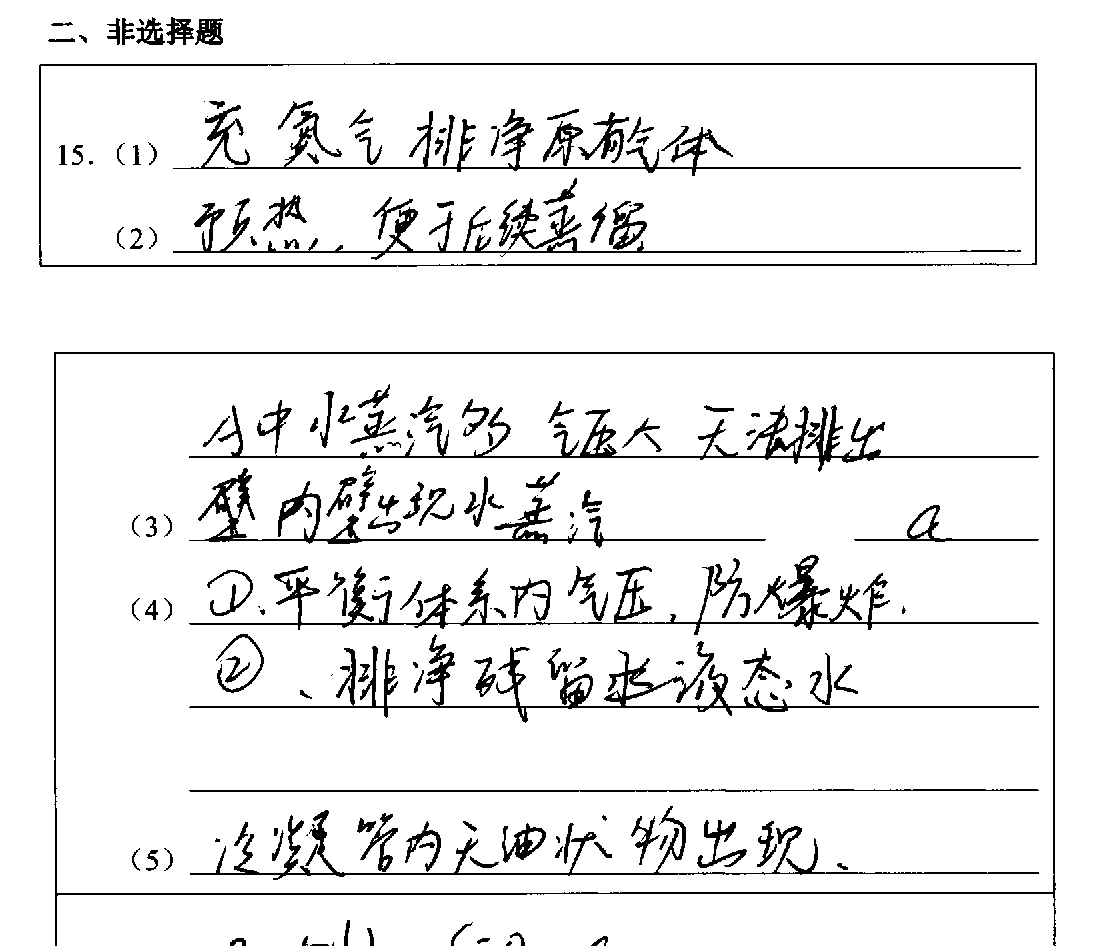 二、非选择题
15.（1）充氮气 排净原有气体
（2）预热，便于后续蒸馏
A中水蒸汽多 气压大 无法排出
（3）壁内壁出现水蒸汽 a
（4）①、平衡体系内气压，防爆炸.
②、排净残留 液态水
（5）冷凝管内无油状物出现、